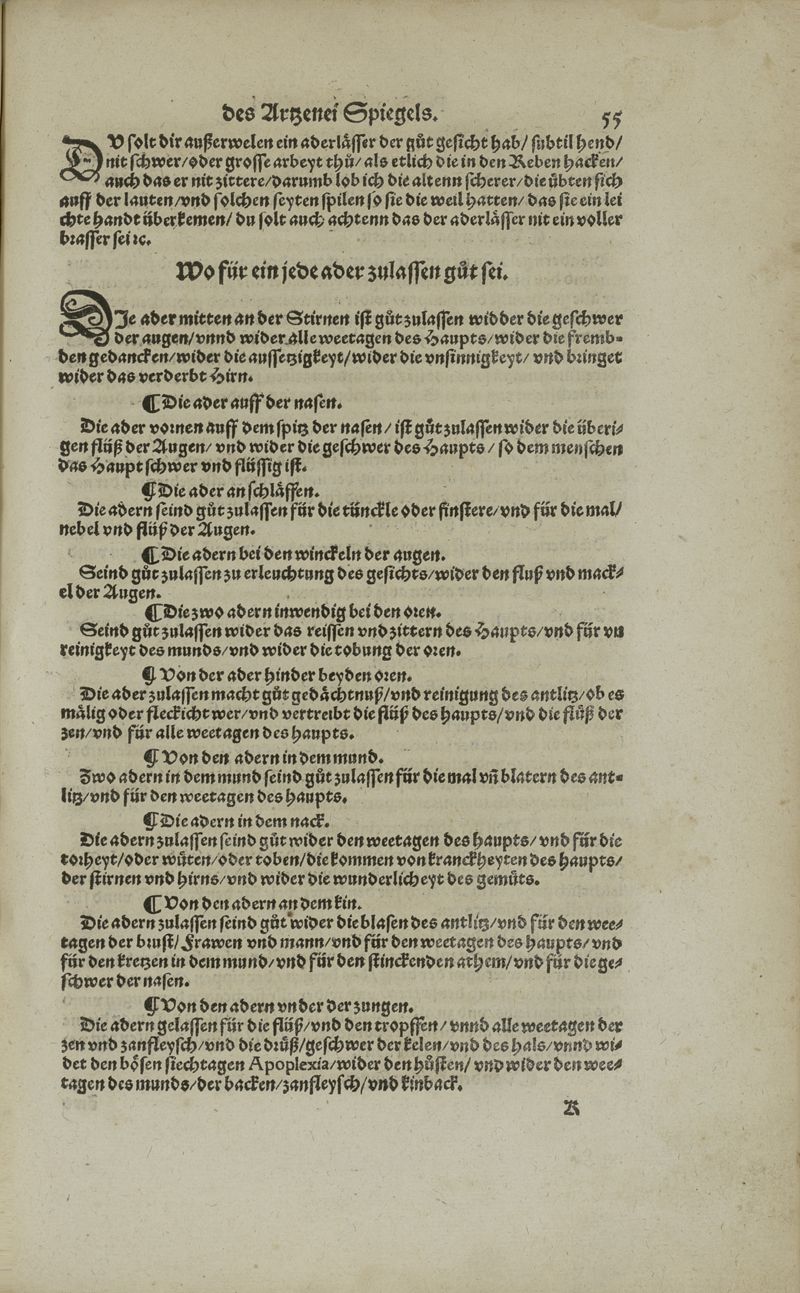 des Artzenei Spiegels. 55
DV solt dir außerwelen ein aderlässer der gůt gesicht hab/ subtil hend/
nit schwer/oder grosse arbeyt thů/als etlich die in den Reben hacken/
auch das er nit zittere/darumb lob ich die altenn scherer/die übten sich
auff der lauten/vnd solchen seyten spilen so sie die weil hatten/das sie ein lei
chte handt überkemen/ du solt auch achtenn das der aderlässer nit ein voller
brasser sei ꝛc.
Wo für ein jede ader zulassen gůt sei.
DIe ader mitten an der Stirnen ist gůt zulassen widder die geschwer
der augen/vnnd wider alle weetagen des Haupts/wider die fremb⸗
den gedancken/wider die aussetzigkeyt/wider die vnsinnigkeyt/ vnd bringet
wider das verderbt Hirn.
¶ Die ader auff der nasen.
Die ader vornen auff dem spitz der nasen/ ist gůt zulassen wider die überi⸗
gen flüß der Augen/ vnd wider die geschwer des Haupts/ so dem menschen
das Haupt schwer vnd flüssig ist.
¶ Die ader an schläffen.
Die adern seind gůt zulassen für die tünckle oder finstere/vnd für die mal/
nebel vnd flüß der Augen.
¶ Die adern bei den winckeln der augen.
Seind gůt zulassen zu erleuchtung des gesichts/wider den fluß vnd mack⸗
el der Augen.
¶ Die zwo adern inwendig bei den oren.
Seind gůt zulassen wider das reissen vnd zittern des Haupts/vnd für vn
reinigkeyt des munds/vnd wider die tobung der oren.
¶ Von der ader hinder beyden oren.
Die ader zulassen macht gůt gedächtnuß/vnd reinigung des antlitz/ob es
mälig oder fleckicht wer/vnd vertreibt die flüß des haupts/vnd die flüß der
zen/vnd für alle weetagen des haupts.
¶ Von den adern in dem mund.
Zwo adern in dem mund seind gůt zulassen für die mal vñ blatern des ant⸗
litz/vnd für den weetagen des haupts.
¶ Die adern in dem nack.
Die adern zulassen seind gůt wider den weetagen des haupts/ vnd für die
torheyt/oder wüten/oder toben/die kommen von kranckheyten des haupts/
der stirnen vnd hirns/vnd wider die wunderlicheyt des gemüts.
¶ Von den adern an dem kin.
Die adern zulassen seind gůt wider die blasen des antlitz/vnd für den wee⸗
tagen der brust/ Frawen vnd mann/vnd für den weetagen des haupts/vnd
für den kretzen in dem mund/vnd für den stinckenden athem/vnd für die ge⸗
schwer der nasen.
¶ Von den adern vnder der zungen.
Die adern gelassen für die flüß/vnd den tropffen/ vnnd alle weetagen der
zen vnd zanfleysch/vnd die drüß/geschwer der kelen/vnd des hals/vnnd wi⸗
det den bösen siechtagen Apoplexia/wider den hůsten/ vnd wider den wee⸗
tagen des munds/der backen/zanfleysch/vnd kinback.
K